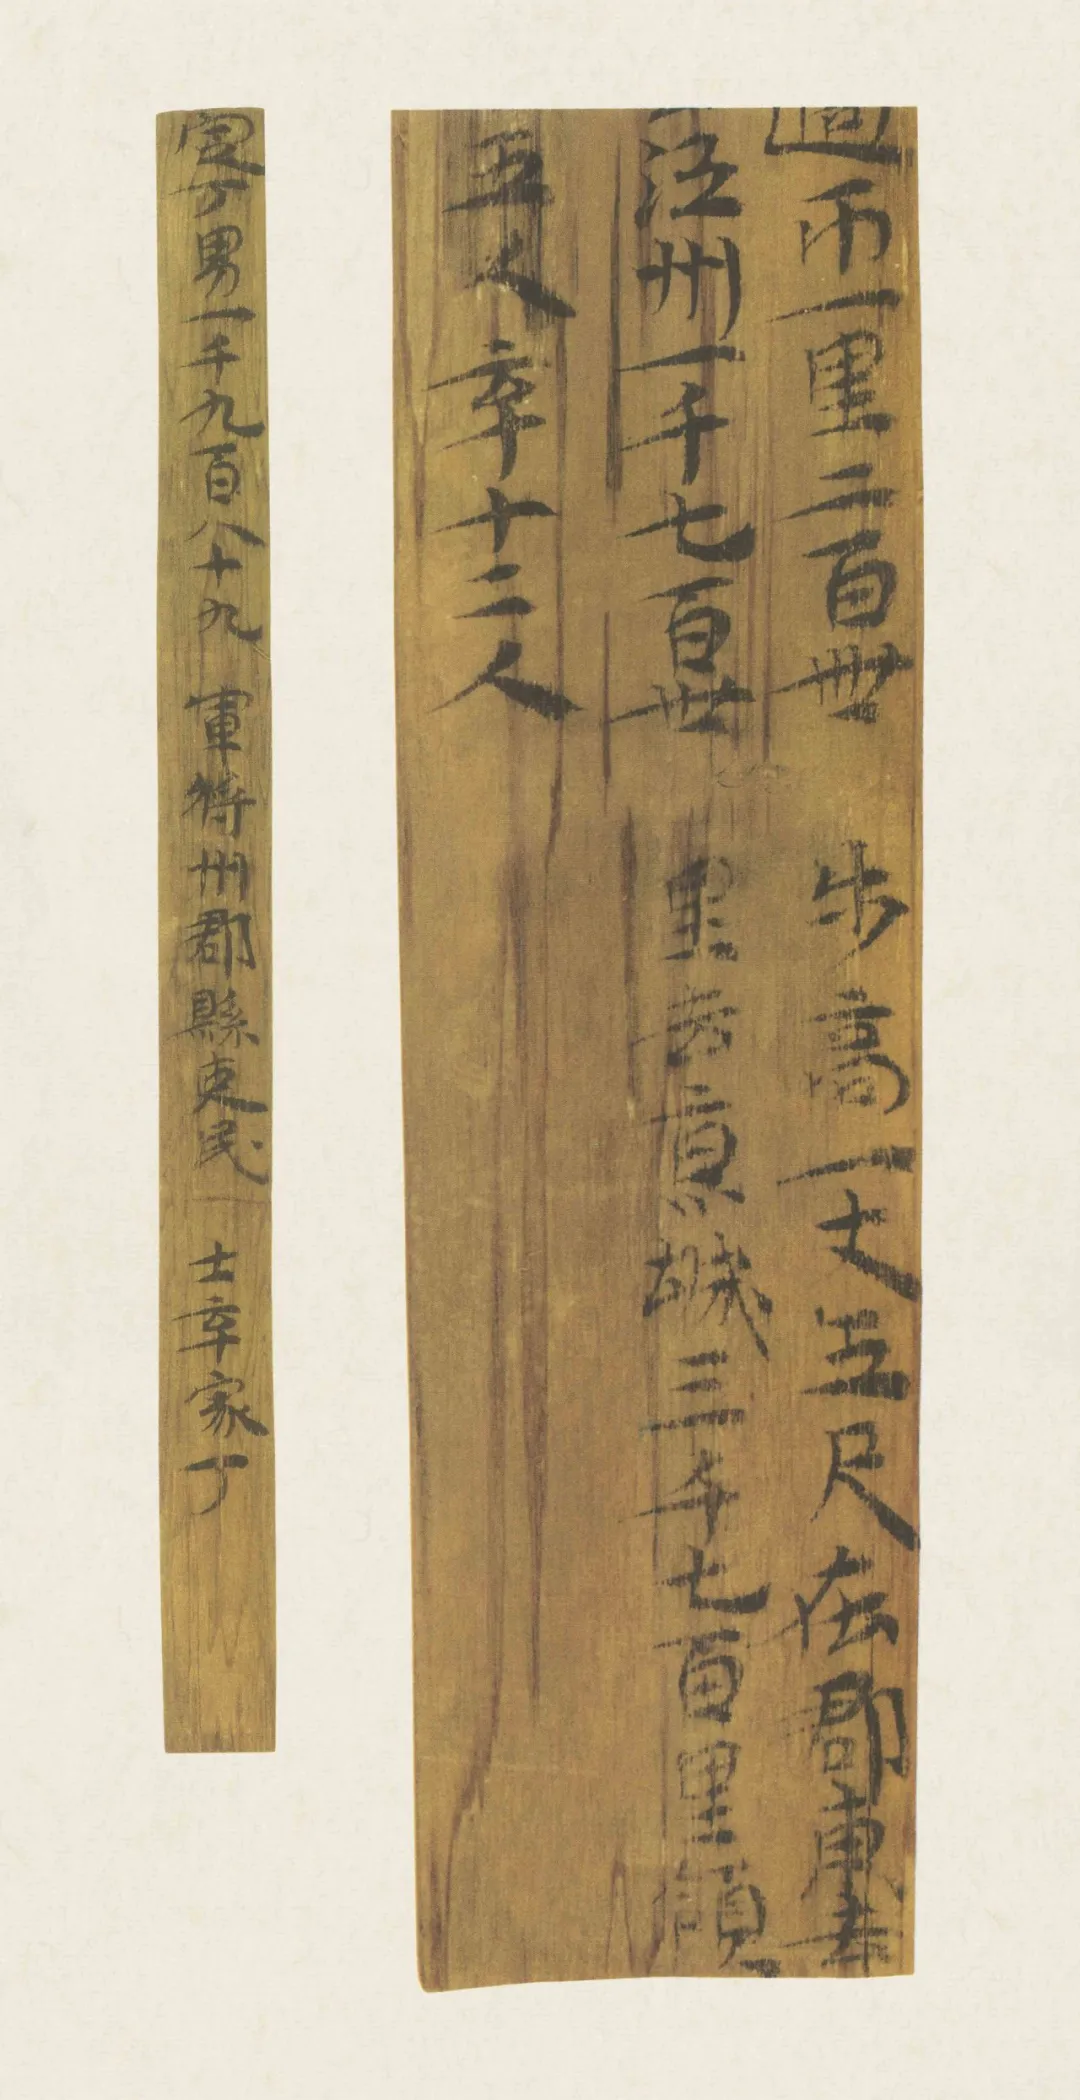 週帀一里二百卌 步高一丈五尺在郡東去
江州一千七百卅 里去京城三千七百里領
五人卒十二人
定丁男一千九百八十九 軍將州郡縣吏民 士卒家丁